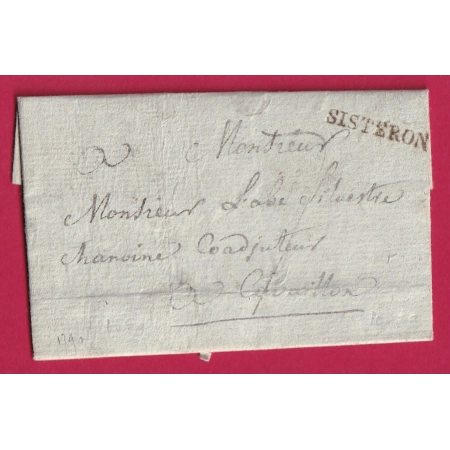 SISTERON
a Monsieur
Monsieur L'abé Silvestre
chanoine Coadjuteur
a Cavaillon